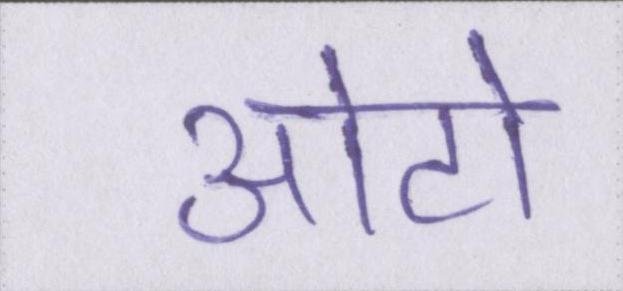 ओटो